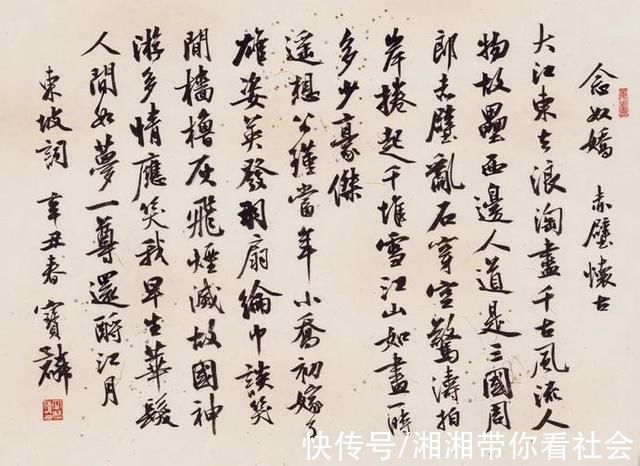 念奴嬌 赤壁懷古
大江東去浪淘盡千古風流人
物故壘西邊人道是三國周
郎赤壁亂石穿空驚濤拍
岸捲起千堆雪江山如畫一時
多少豪傑
遙想公瑾當年小喬初嫁了
雄姿英發羽扇綸巾談笑
間檣櫓灰飛煙滅故國神
游多情應笑我早生華髮
人間如夢一尊還酹江月
東坡詞 辛丑春 寶麟
快传号/湘湘带你看社会